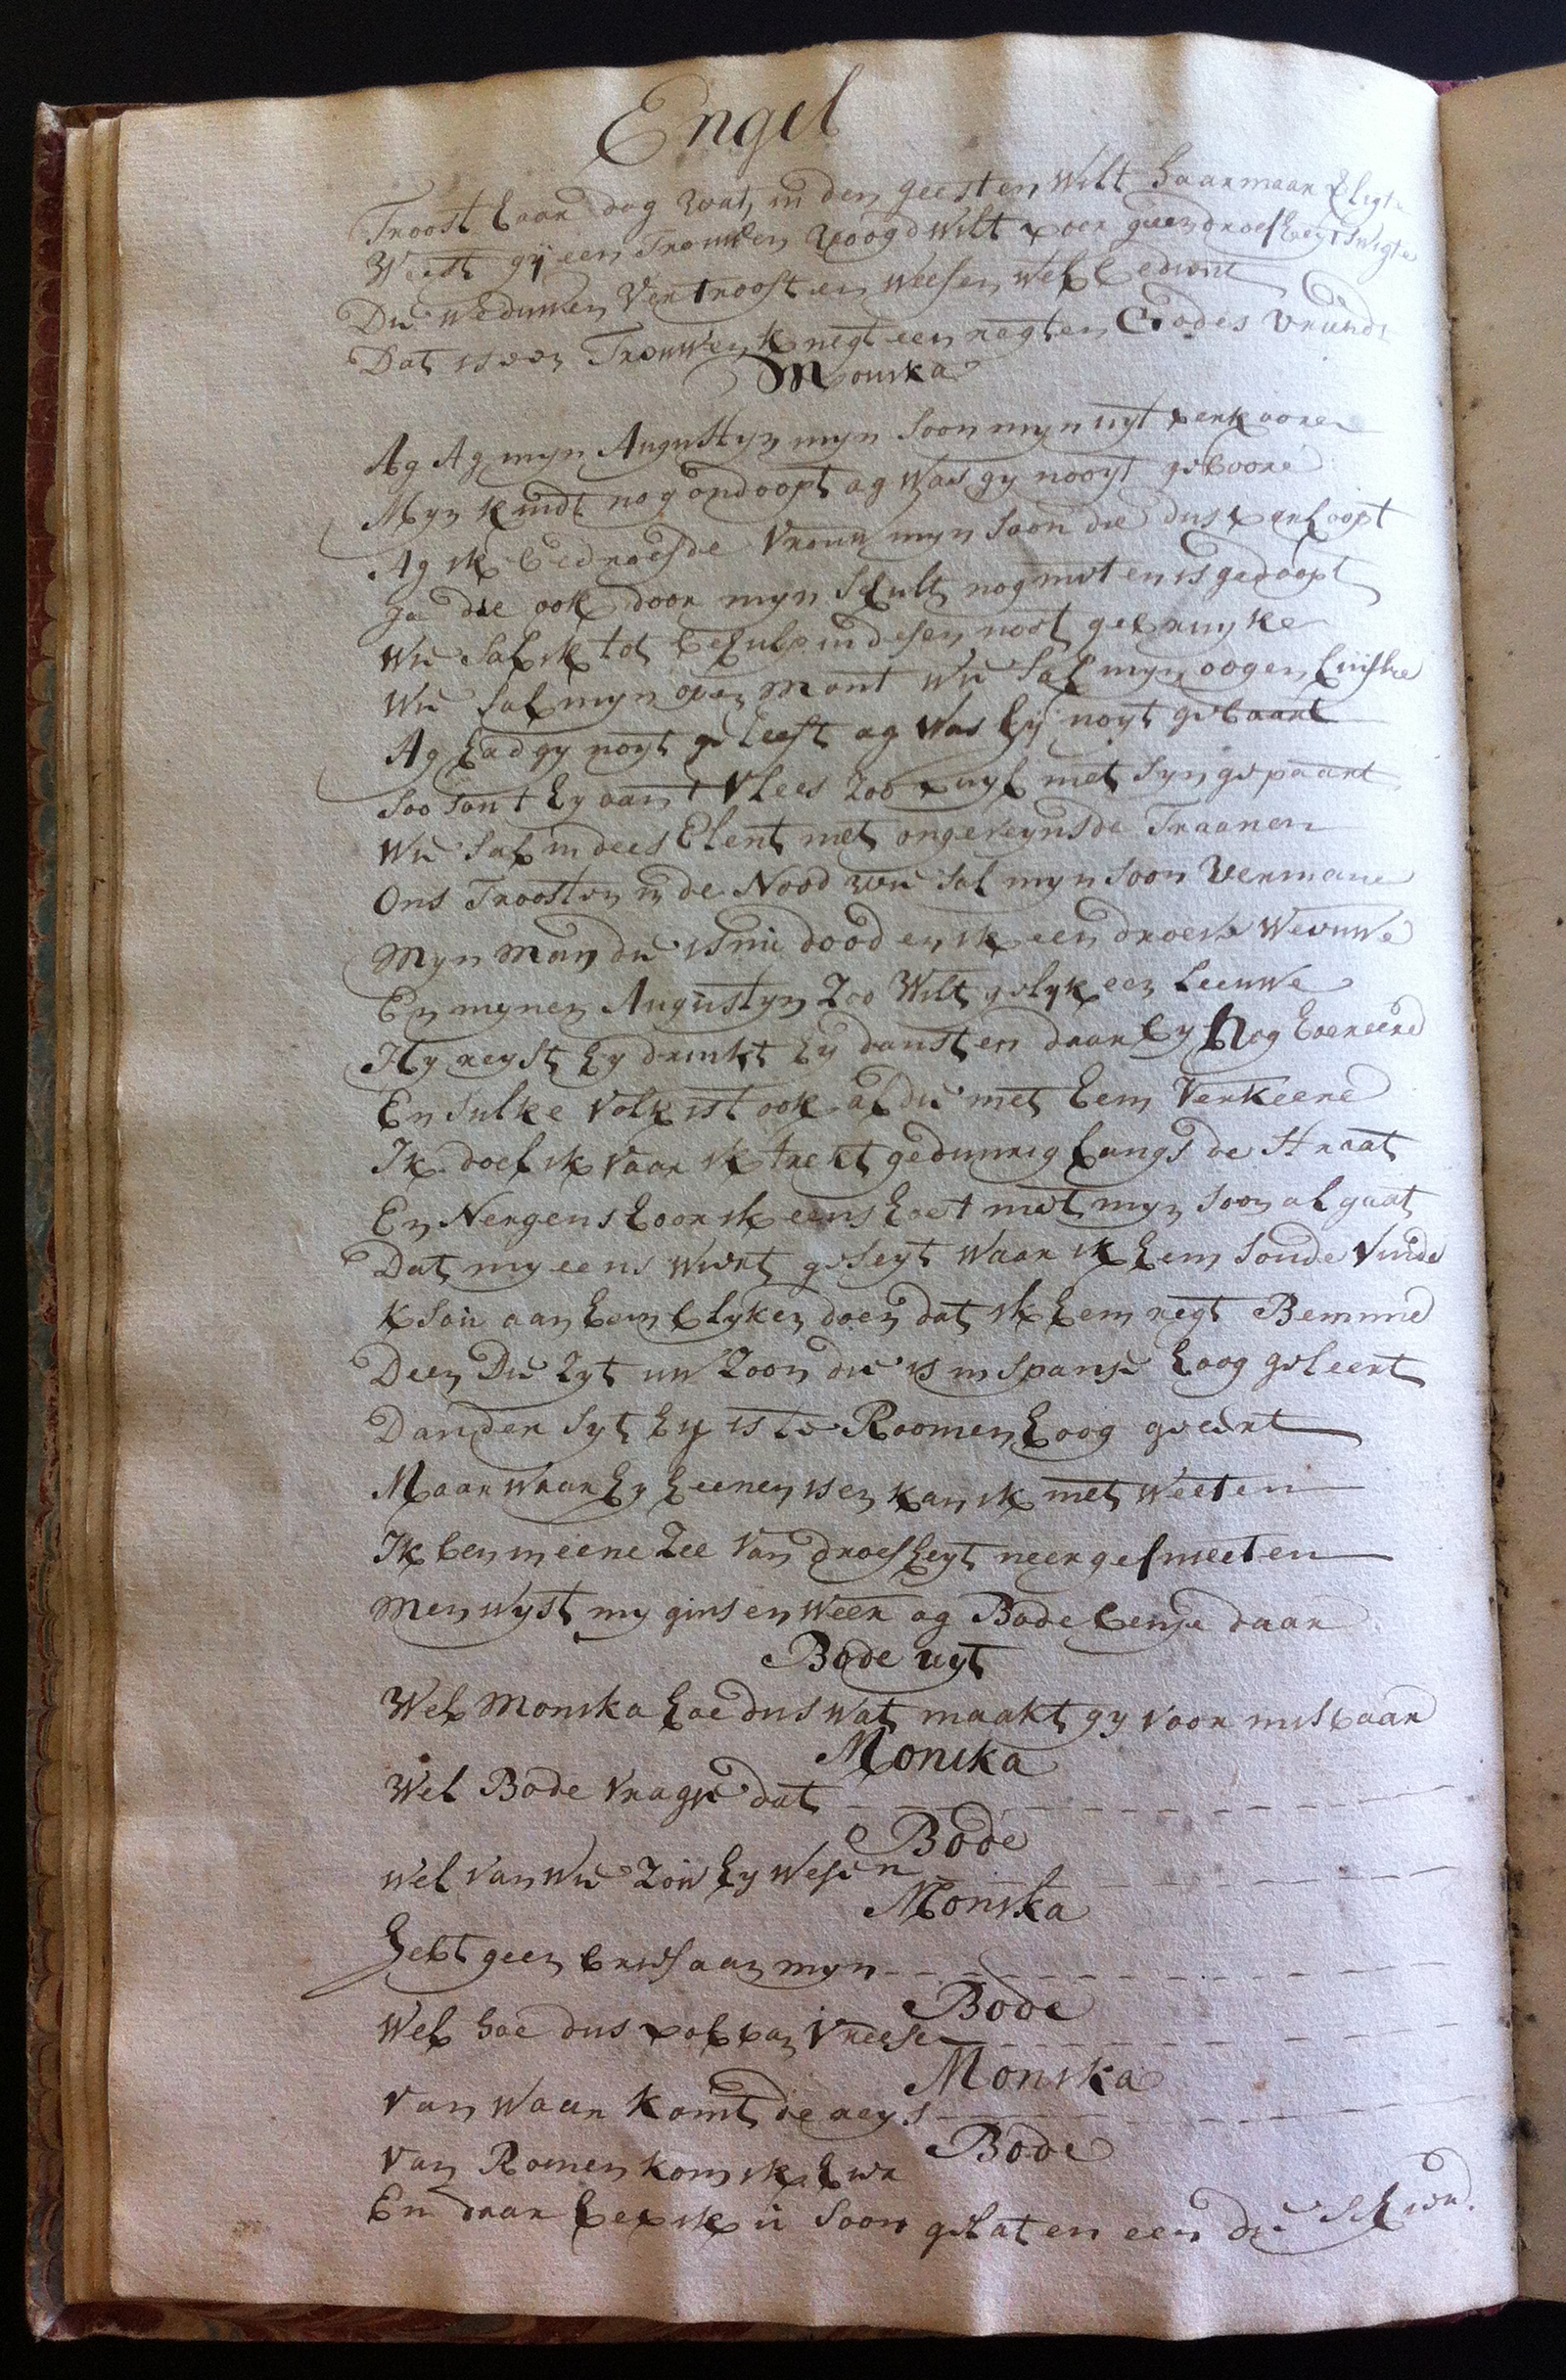 Engel
Troost haar dog wat in den geest en wilt haar maar
Weest gy een Trouwen voogd wilt voor geen droefheyt swigte
Die weduwen Vertroost en weesen wel bedient
Dat is een Trouwen knegt een regten Godes vriendt
Monika
Ag Ag myn Augustyn myn soon myn uyt verkoore
Myn kindt nog ondoopt ag was gy nooyt geboore
Ag ik bedroefde Vrouw myn soon die dus verloopt
Ja die ook door myn schult nog niet en is gedoopt
Wie sal ik tot behulp in desen noot gebruyke
Wie sal myn open mont wie sal myn oogen luyke
Ag had gy noyt geleeft ag was hy noyt gebaart
Soo sont hy aan t Vlees Zoo vuyl met syn gepaart
Wie sal in dees Elent met ongeveynsde Traanen
Ons Troosten in de Nood wie sal myn soon Vermane
Myn man die is nu dood en ik een droeve Weeuwe
En mynen Augustyn Zoo Wilt gelyk een Leeuwe
Hy reyst hy drinkt hy danst en daar by Nog hoereere
En sulke Volk ist ook al die met hem Verkeere
Ik doel ik Vaar ik trekt geduurig langs de straat
En Nergens hoor ik eens hoet met myn soon al gaat
Dat my eens wiert geseyt waar ik hem soude Vinde
K sou aan hem blyken doen dat ik hem regt Beminne
Deen Die Zyt uw Zoon die is in spanje hoog geleert
Dander syt hy is te Roomen hoog geeert
Maar waar hy heenen is en kan ik niet Weeten
Ik ben in eene Zee Van droefheyt neer gesmeeten
Men wyst my gins en Weer ag Bode benje daar
Bode uyt
Wel Monika hoe dus wat maakt gy voor misbaar
Monika
Wel Bode Vragje dat
Bode
Wel Van wie Zou hy Wesen
Monika
Hebt geen brief aan myn
Bode
Wel hoe dus vol van Vreese
Monika
Van Waar komt de reys
Bode
Van Romen kom ik hier
En daar heb ik u soon gelaten een die